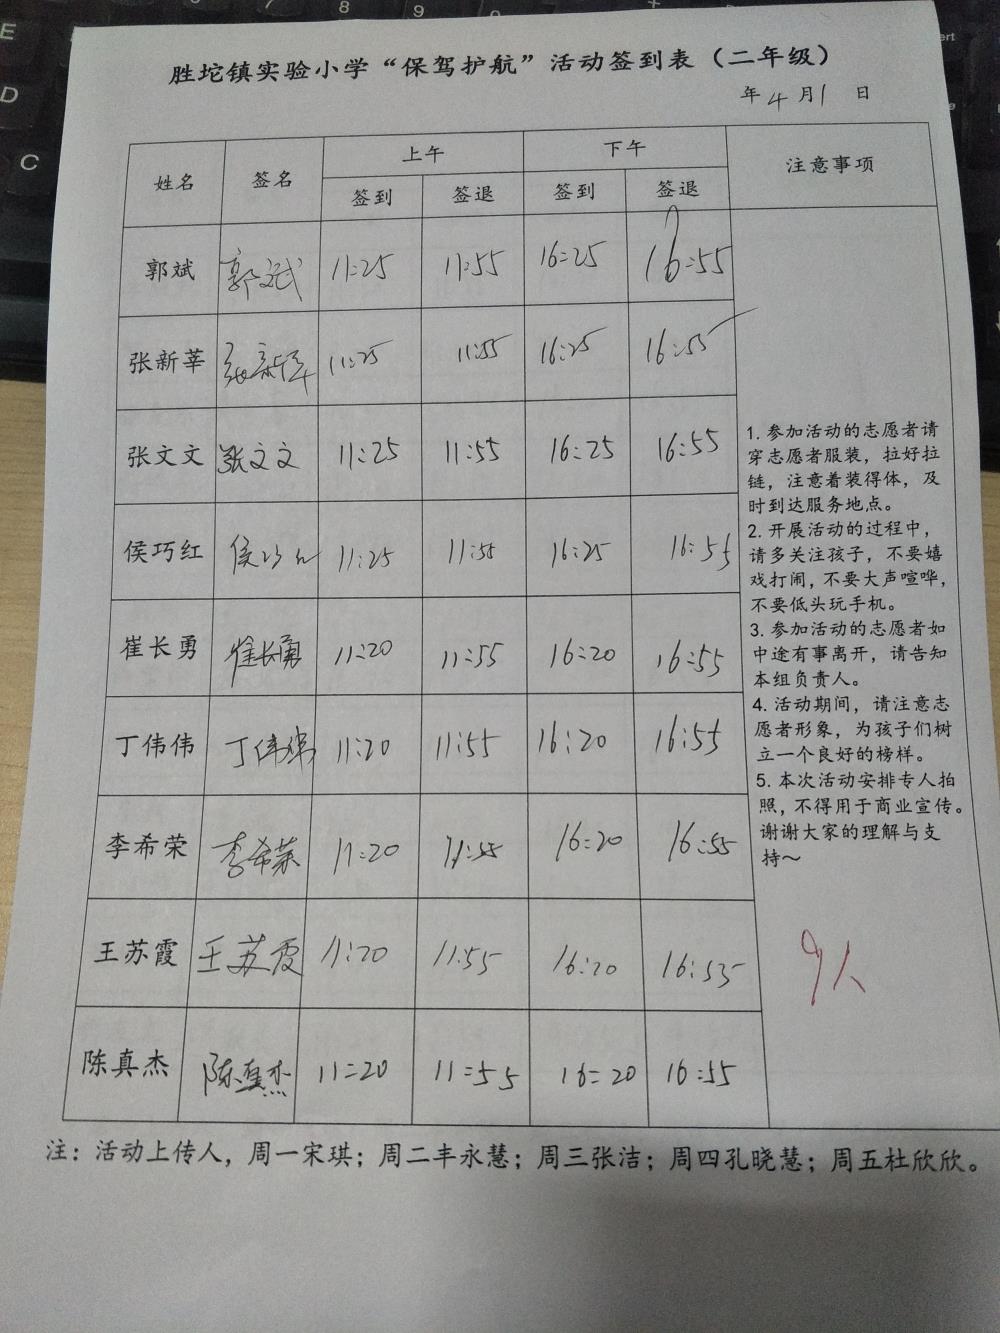 胜坨镇实验小学“保驾护航”活动签到表（二年级）
年 4 月 1 日
姓名 签名 上午 下午 注意事项
签到 签退 签到 签退
郭斌 郭斌 11:25 11:55 16:25 16:55
张新莘 张新莘 11:25 11:55 16:25 16:55
张文文 张文文 11:25 11:55 16:25 16:55
侯巧红 侯巧红 11:25 11:55 16:25 16:55
崔长勇 崔长勇 11:20 11:55 16:20 16:55
丁伟伟 丁伟伟 11:20 11:55 16:20 16:55
李希荣 李希荣 11:20 11:55 16:20 16:55
王苏霞 王苏霞 11:20 11:55 16:20 16:55
陈真杰 陈真杰 11:20 11:55 16:20 16:55
1. 参加活动的志愿者请
穿志愿者服装，拉好拉
链，注意着装得体，及
时到达服务地点。
2. 开展活动的过程中，
请多关注孩子，不要嬉
戏打闹，不要大声喧哗，
不要低头玩手机。
3. 参加活动的志愿者如
中途有事离开，请告知
本组负责人。
4. 活动期间，请注意志
愿者形象，为孩子们树
立一个良好的榜样。
5. 本次活动安排专人拍
照，不得用于商业宣传。
谢谢大家的理解与支
持～
9人
注：活动上传人，周一宋琪；周二丰永慧；周三张洁；周四孔晓慧；周五杜欣欣。